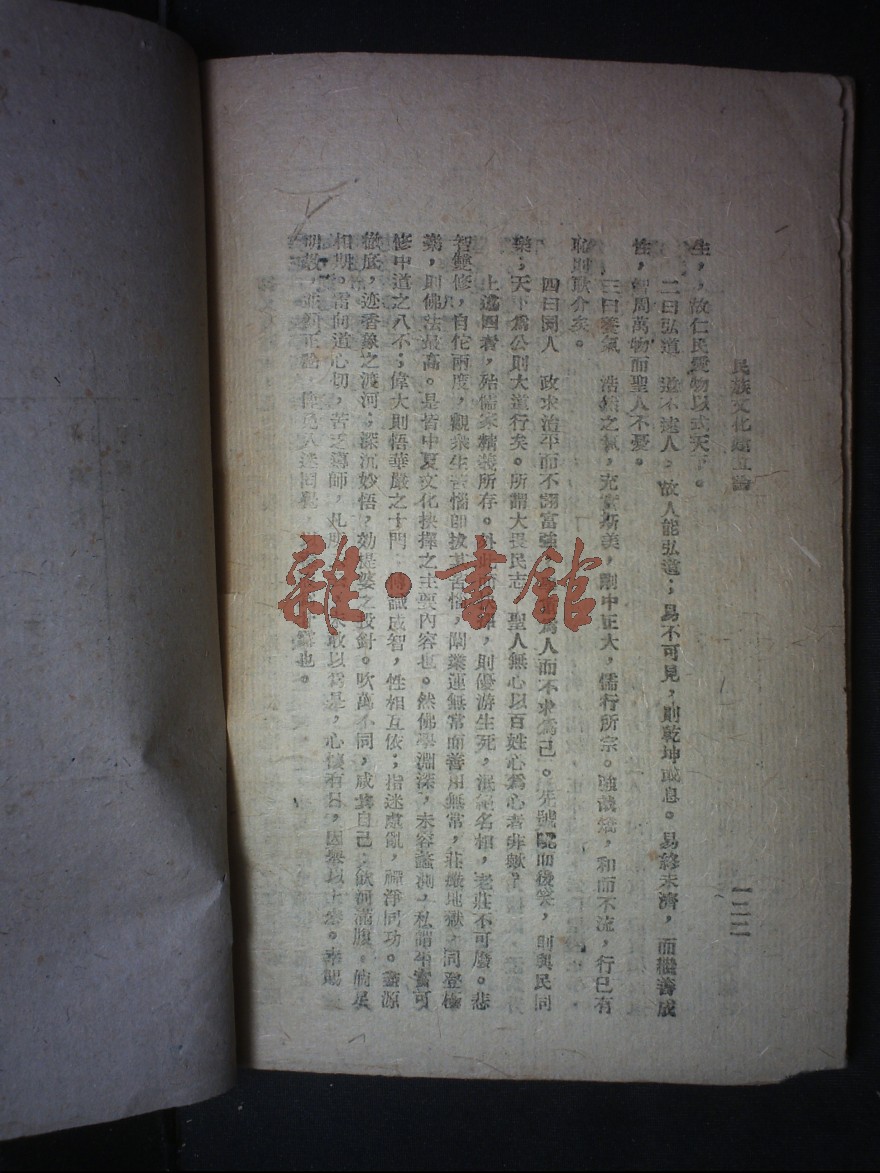 民族文化建立論
一二二
生，故仁民愛物以式天下。
二曰弘道　道不遠人。故人能弘道；易不可見，則乾坤或息。易終未濟，而繼善成
性，智周萬物而聖人不憂。
三曰養氣　浩然之氣，充實斯美，剛中正大，儒行所宗。強哉矯，和而不流，行已有
恥則耿介矣。
四曰同人　政求治平而不諏富強，為人而不求為己。先號咷而後笑，則與民同
樂；天下為公則大道行矣。所謂大畏民志　聖人無心以百姓心為心者非歟！
上述四者，殆儒家精義所存。則優游生死，泯絕名相，老莊不可廢。悲
智雙修，自佗兩度，觀衆生苦惱而拔其苦惱，闡業運無常而善用無常，莊嚴地獄，同登極
樂，則佛法最高。是皆中夏文化抉擇之主要內容也。然佛學淵深，未容蠡測，私謂平實可
修中道之八不；偉大則悟華嚴之十門；轉識成智，性相互依；指迷慮亂，禪淨同功。盡源
徹底，迹香象之渡河；深沉妙悟，効提婆之投針。吹萬不同，咸其自己；飲河滿腹，
相期。嘗向道心切，苦乏導師，敢以為是，心懷有日，因舉以上。幸賜
也。
雜·書館